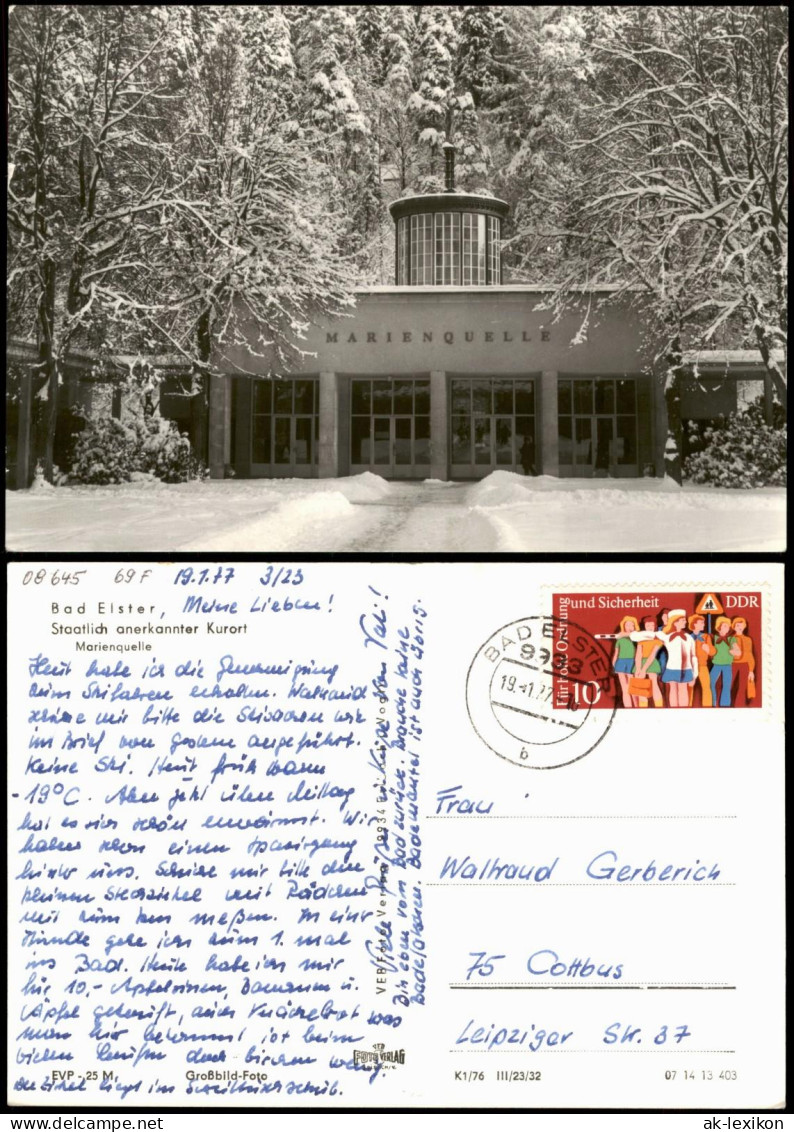 MARIENQUELLE
08645 69F 19.1.77 3/23
Bad Elster, Meine Lieben!
Staatlich anerkannter Kurort
Marienquelle
Heut habe ich die Genemigung
zum Skifahren erhalten. Waltraud
schicke mir bitte die Skisachen wie
im Brief von gestern angeführt.
Keine Ski. Heut früh waren
-19°C. Aber jetzt über Mittag
hat es sich schön erwärmt. Wir
haben schon einen Spaziergang
hinter uns. Schicke mir bitte den
kleinen Stechzirkel mit Rädchen
mit zum km meßen. In einer
Stunde gehe ich zum 1. mal
ins Bad. Heute habe ich mir
für 10,- Apfelsinen, Bananen u.
Äpfel gekauft, auch Knäckebrot was
man hier bekommt ist beim
vielen laufen doch bissen wenig.
Der Zirkel liegt im
EVP -,25 M Großbild-Foto
Viele Grüße u. Küsse von Vati!
Bin eben vom Bad zurück. Brauche keine
Badesachen. Bademäntel ist auch
VEB Foto-Verlag
FOTO VERLAG
BAD ELSTER
9933
19.-1.77
b
Für hohe Ordnung und Sicherheit DDR
10
Frau
Waltraud Gerberich
75 Cottbus
Leipziger Str. 37
K1/76 III/23/32 07 14 13 403
ak-lexikon
ak-lexikon.com